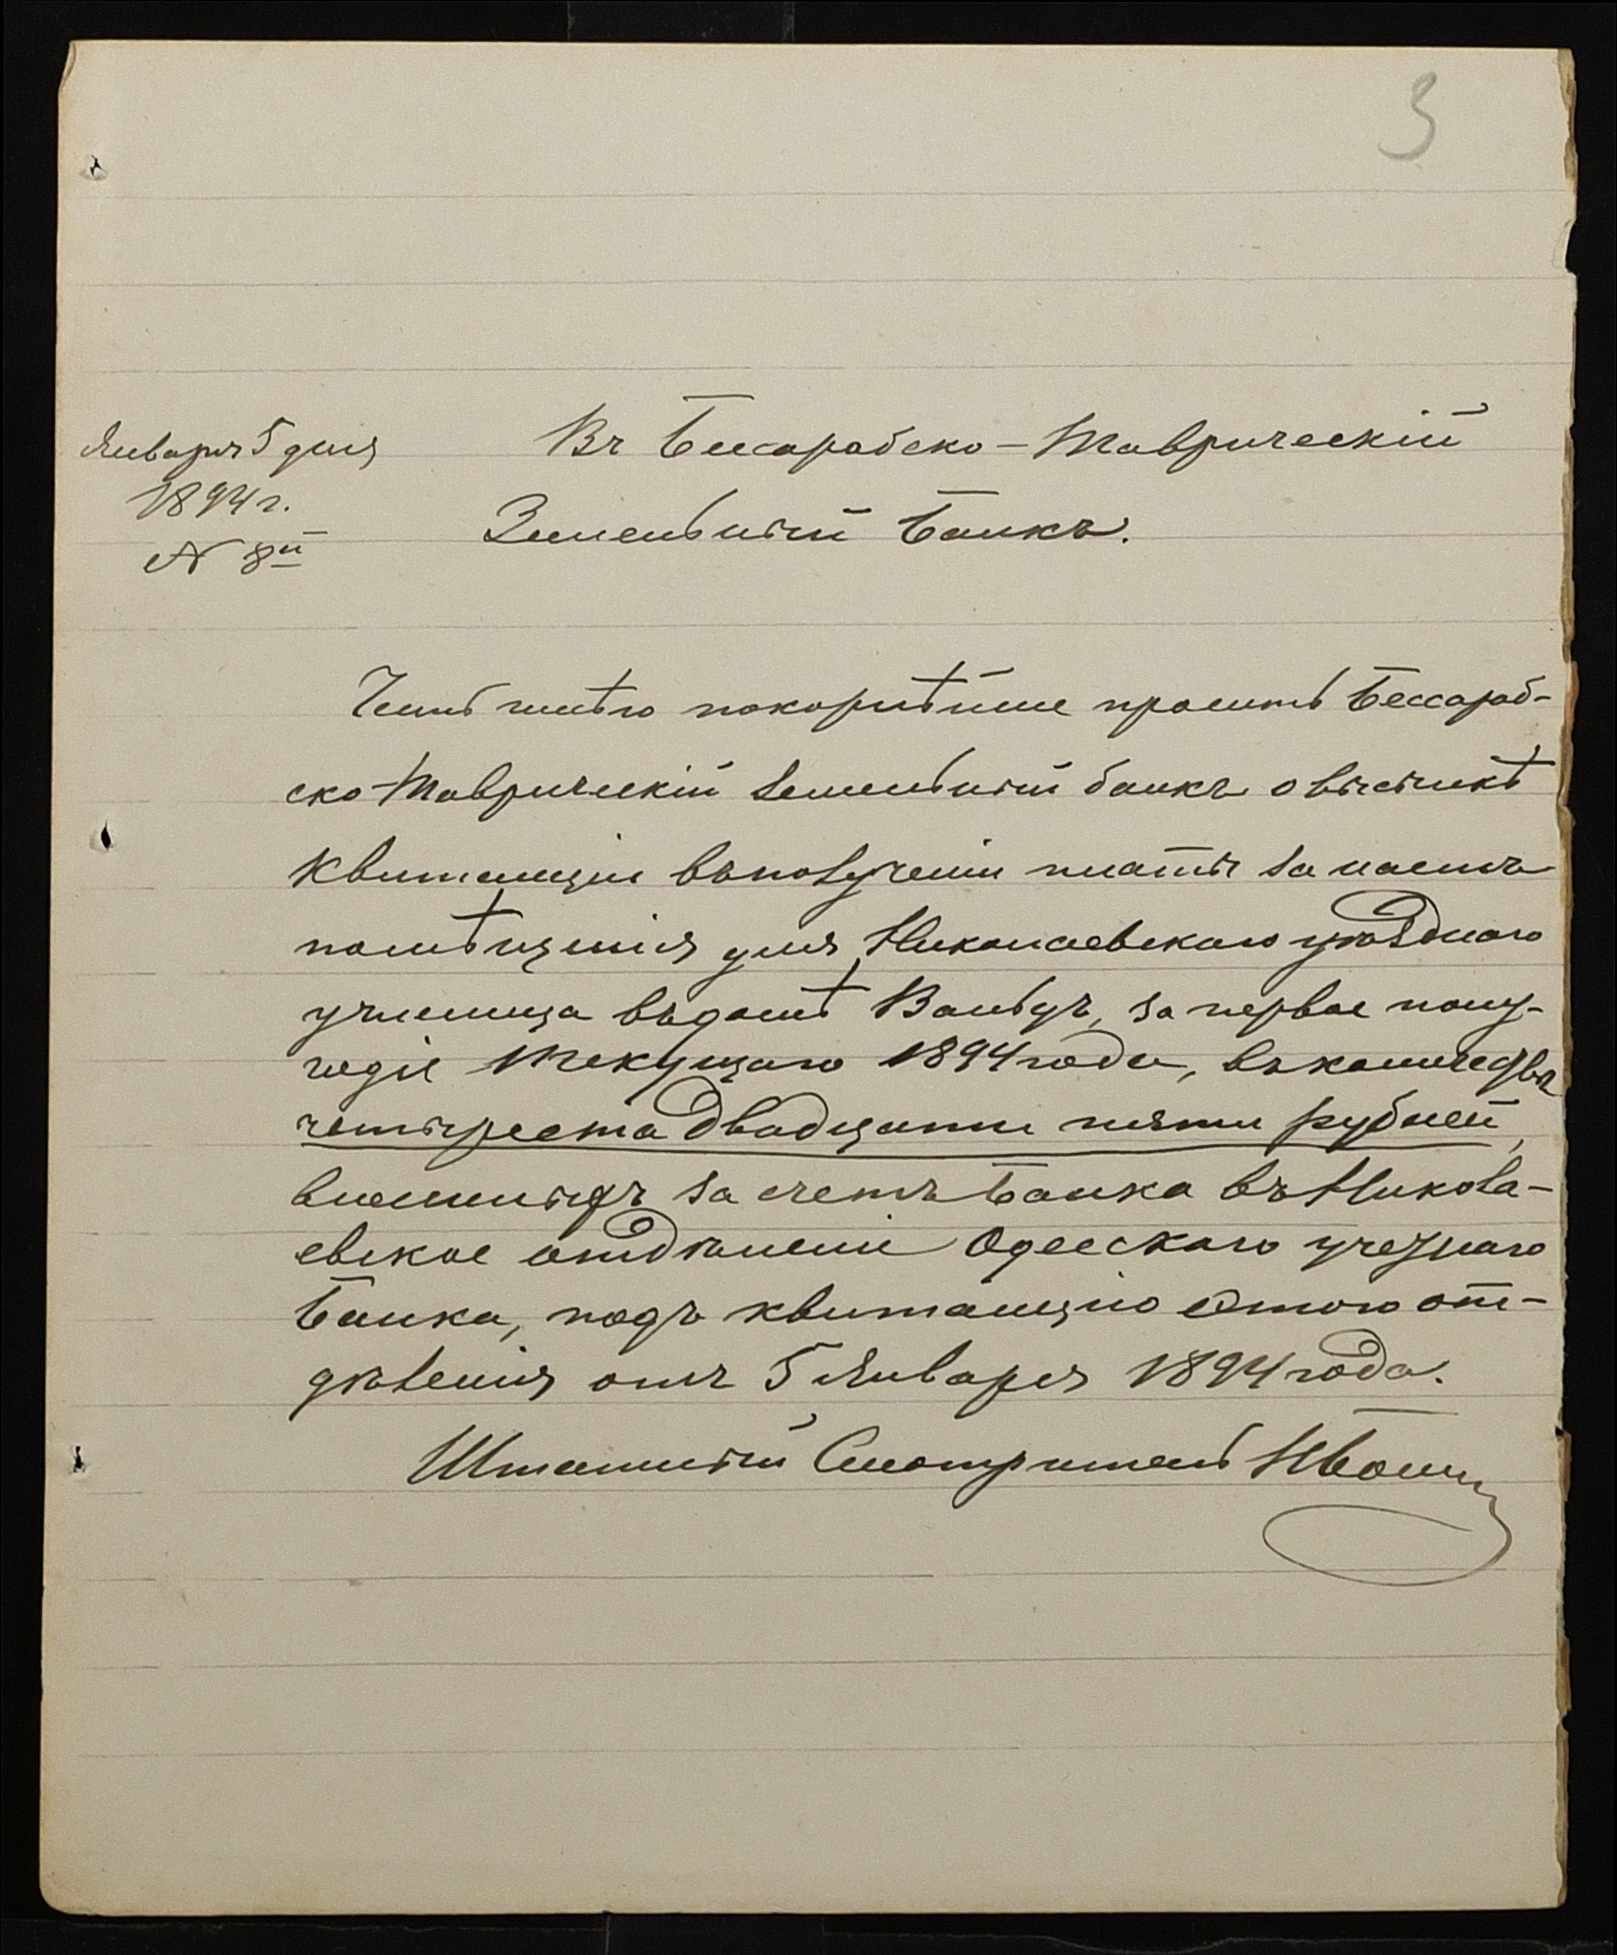 3
Января 5 дня
1894 г.
№ 8й
Въ Бессарабско-Таврическій
Земельный Банкъ.
Честь имѣю покорнѣйше просить Бессараб-
ско-Таврическій Земельный банкъ о высылкѣ
квитанціи въ полученіи платы за наемъ
помѣщенія для Николаевскаго уѣзднаго
училища въ домѣ за первое полу-
годіе текущаго 1894 года, въ количествѣ
четыреста двадцати пяти рублей,
внесенныхъ за счетъ Банка въ Никола-
евское отдѣленіе Одесскаго учетнаго
Банка, подъ квитанцію этого от-
дѣленія отъ 5 Января 1894 года.
Штатный Смотритель